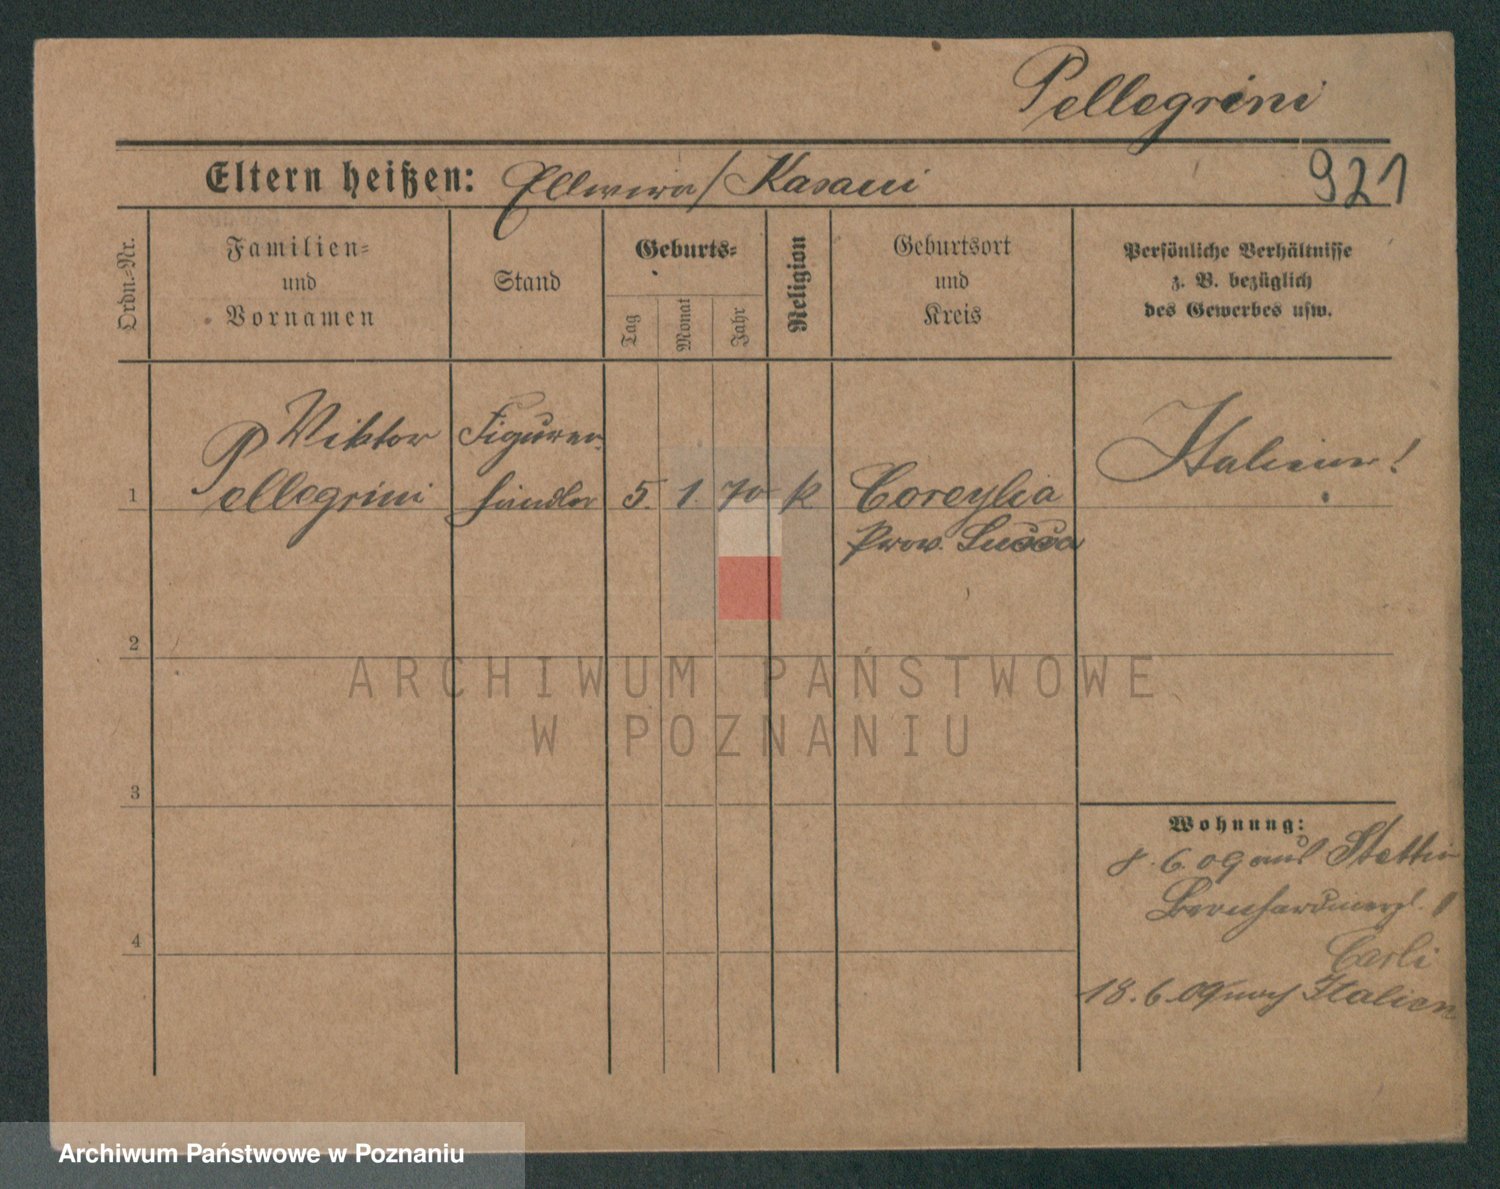 Pellegrini
Eltern heißen: Ellwira / Kasani
921
Ordn.-Nr.
Familien-
und
Vornamen
Stand
Geburts-
Tag
Monat
Jahr
Religion
Geburtsort
und
Kreis
Persönliche Verhältnisse
z. B. bezüglich
des Gewerbes usw.
Viktor
Pellegrini
Figuren
händler
1
5. 1. 70 k
Coreylia
Prov. Lucca
Italiener!
2
3
4
Wohnung:
8. 6. 09 aus Stettin
Bernhardinerpl.
Carli
18. 6. 09 nach Italien
ARCHIWUM PAŃSTWOWE
W POZNANIU
Archiwum Państwowe w Poznaniu